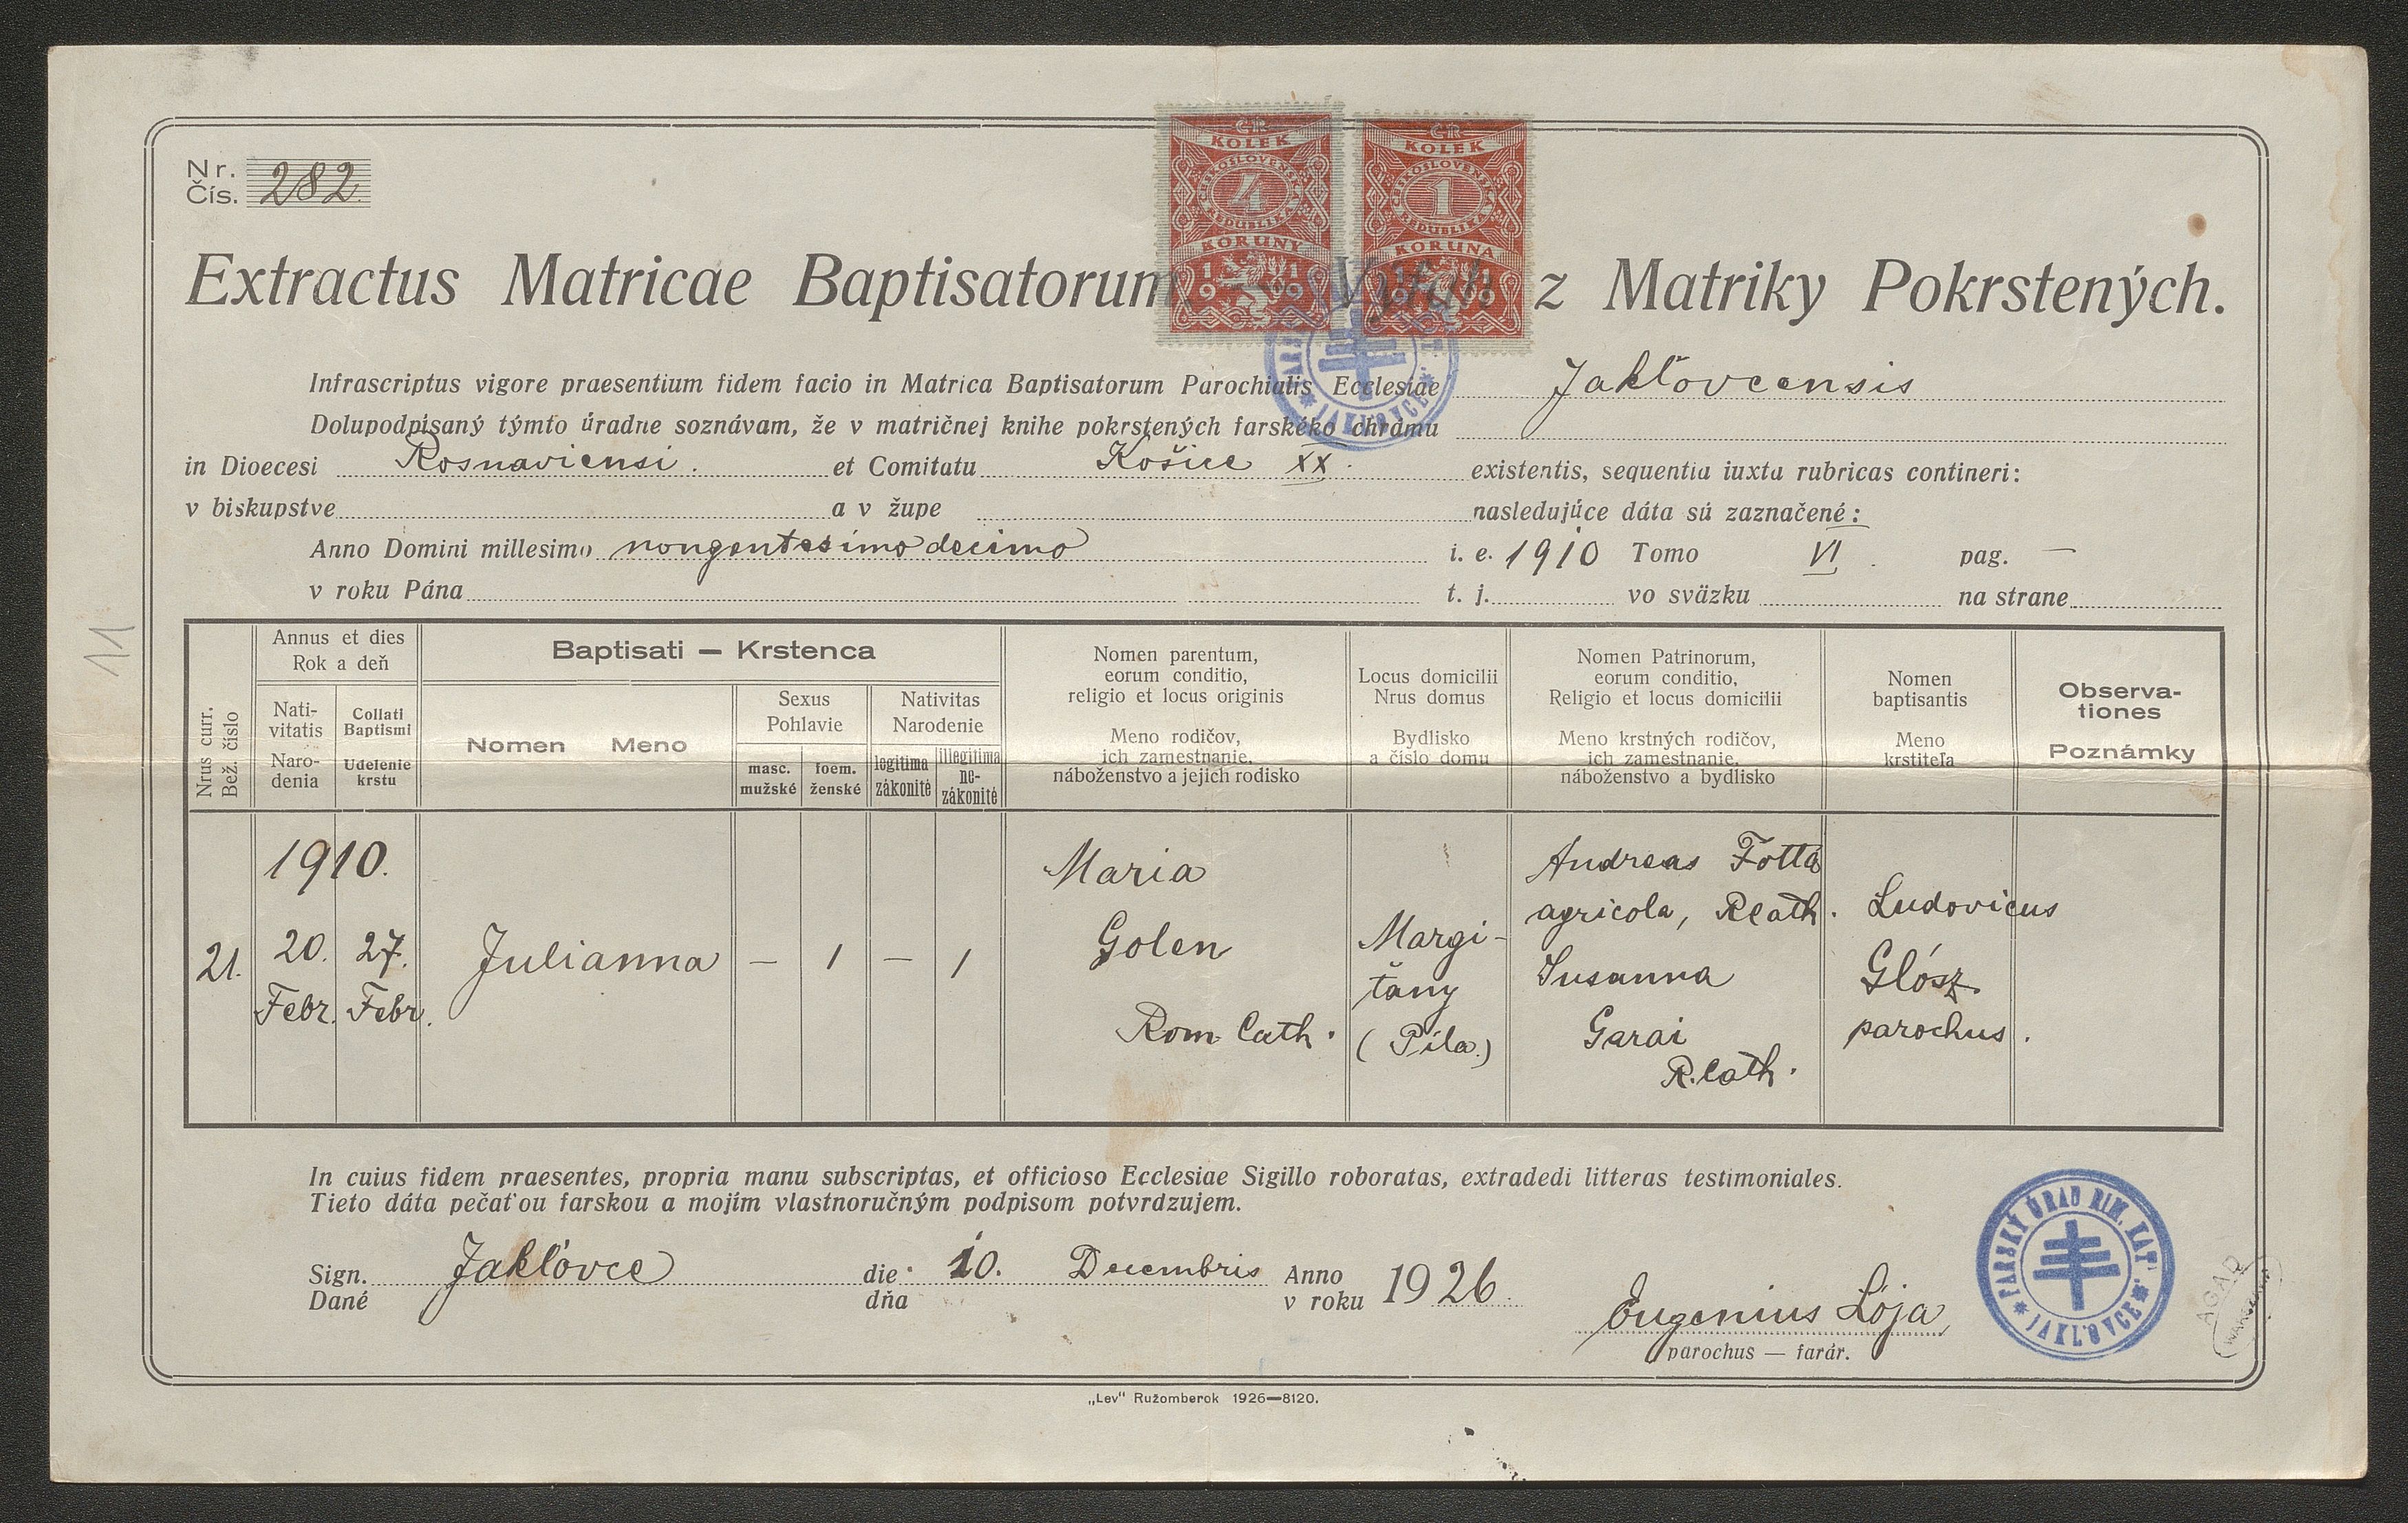 Nr. 282.
Čís.
ČR
KOLEK
ČESKOSLOVENSKÁ
4
REPUBLIKA
KORUNY
1919
ČR
KOLEK
ČESKOSLOVENSKÁ
1
REPUBLIKA
KORUNA
1919
Extractus Matricae Baptisatorum. Výťah z Matriky Pokrstených.
Infrascriptus vigore praesentium fidem facio in Matrica Baptisatorum Parochialis Ecclesiae Jakľovcensis
Dolupodpísaný týmto úradne soznávam, že v matričnej knihe pokrstených farského chrámu
in Dioecesi Rosnaviensi. et Comitatu Košice XX. existentis, sequentia iuxta rubricas contineri:
v biskupstve a v župe nasledujúce dáta sú zaznačené:
Anno Domini millesimo nongentesimo decimo i. e. 1910 Tomo VI. pag. —
v roku Pána t. j. vo sväzku na strane
11
Nrus curr.
Bež. číslo
Annus et dies
Rok a deň
Nati-
vitatis
Naro-
denia
Collati
Baptismi
Udelenie
krstu
Baptisati — Krstenca
Nomen Meno
Sexus
Pohlavie
masc.
mužské
foem.
ženské
Nativitas
Narodenie
legitima
zákonité
illegitima
ne-
zákonité
Nomen parentum,
eorum conditio,
religio et locus originis
Meno rodičov,
ich zamestnanie,
náboženstvo a jejich rodisko
Locus domicilii
Nrus domus
Bydlisko
a číslo domu
Nomen Patrinorum,
eorum conditio,
Religio et locus domicilii
Meno krstných rodičov,
ich zamestnanie,
náboženstvo a bydlisko
Nomen
baptisantis
Meno
krstiteľa
Observa-
tiones
Poznámky
21.
1910.
20.
Febr.
27.
Febr.
Julianna
—
1
—
1
Maria
Golen
Rom. Cath.
Margi-
ťany
(Píla.)
Andreas Fotta
agricola, Rcath.
Susanna
Garai
R.cath.
Ludovicus
Glósz
parochus.
In cuius fidem praesentes, propria manu subscriptas, et officioso Ecclesiae Sigillo roboratas, extradedi litteras testimoniales.
Tieto dáta pečaťou farskou a mojím vlastnoručným podpisom potvrdzujem.
Sign. Jakľovce die 10. Decembris Anno 1926.
Dané dňa v roku
Eugenius Lója
parochus — farár.
FARSKÝ ÚRAD RIM. KAT.
JAKĽOVCE
AGAD
„Lev" Ružomberok 1926—8120.